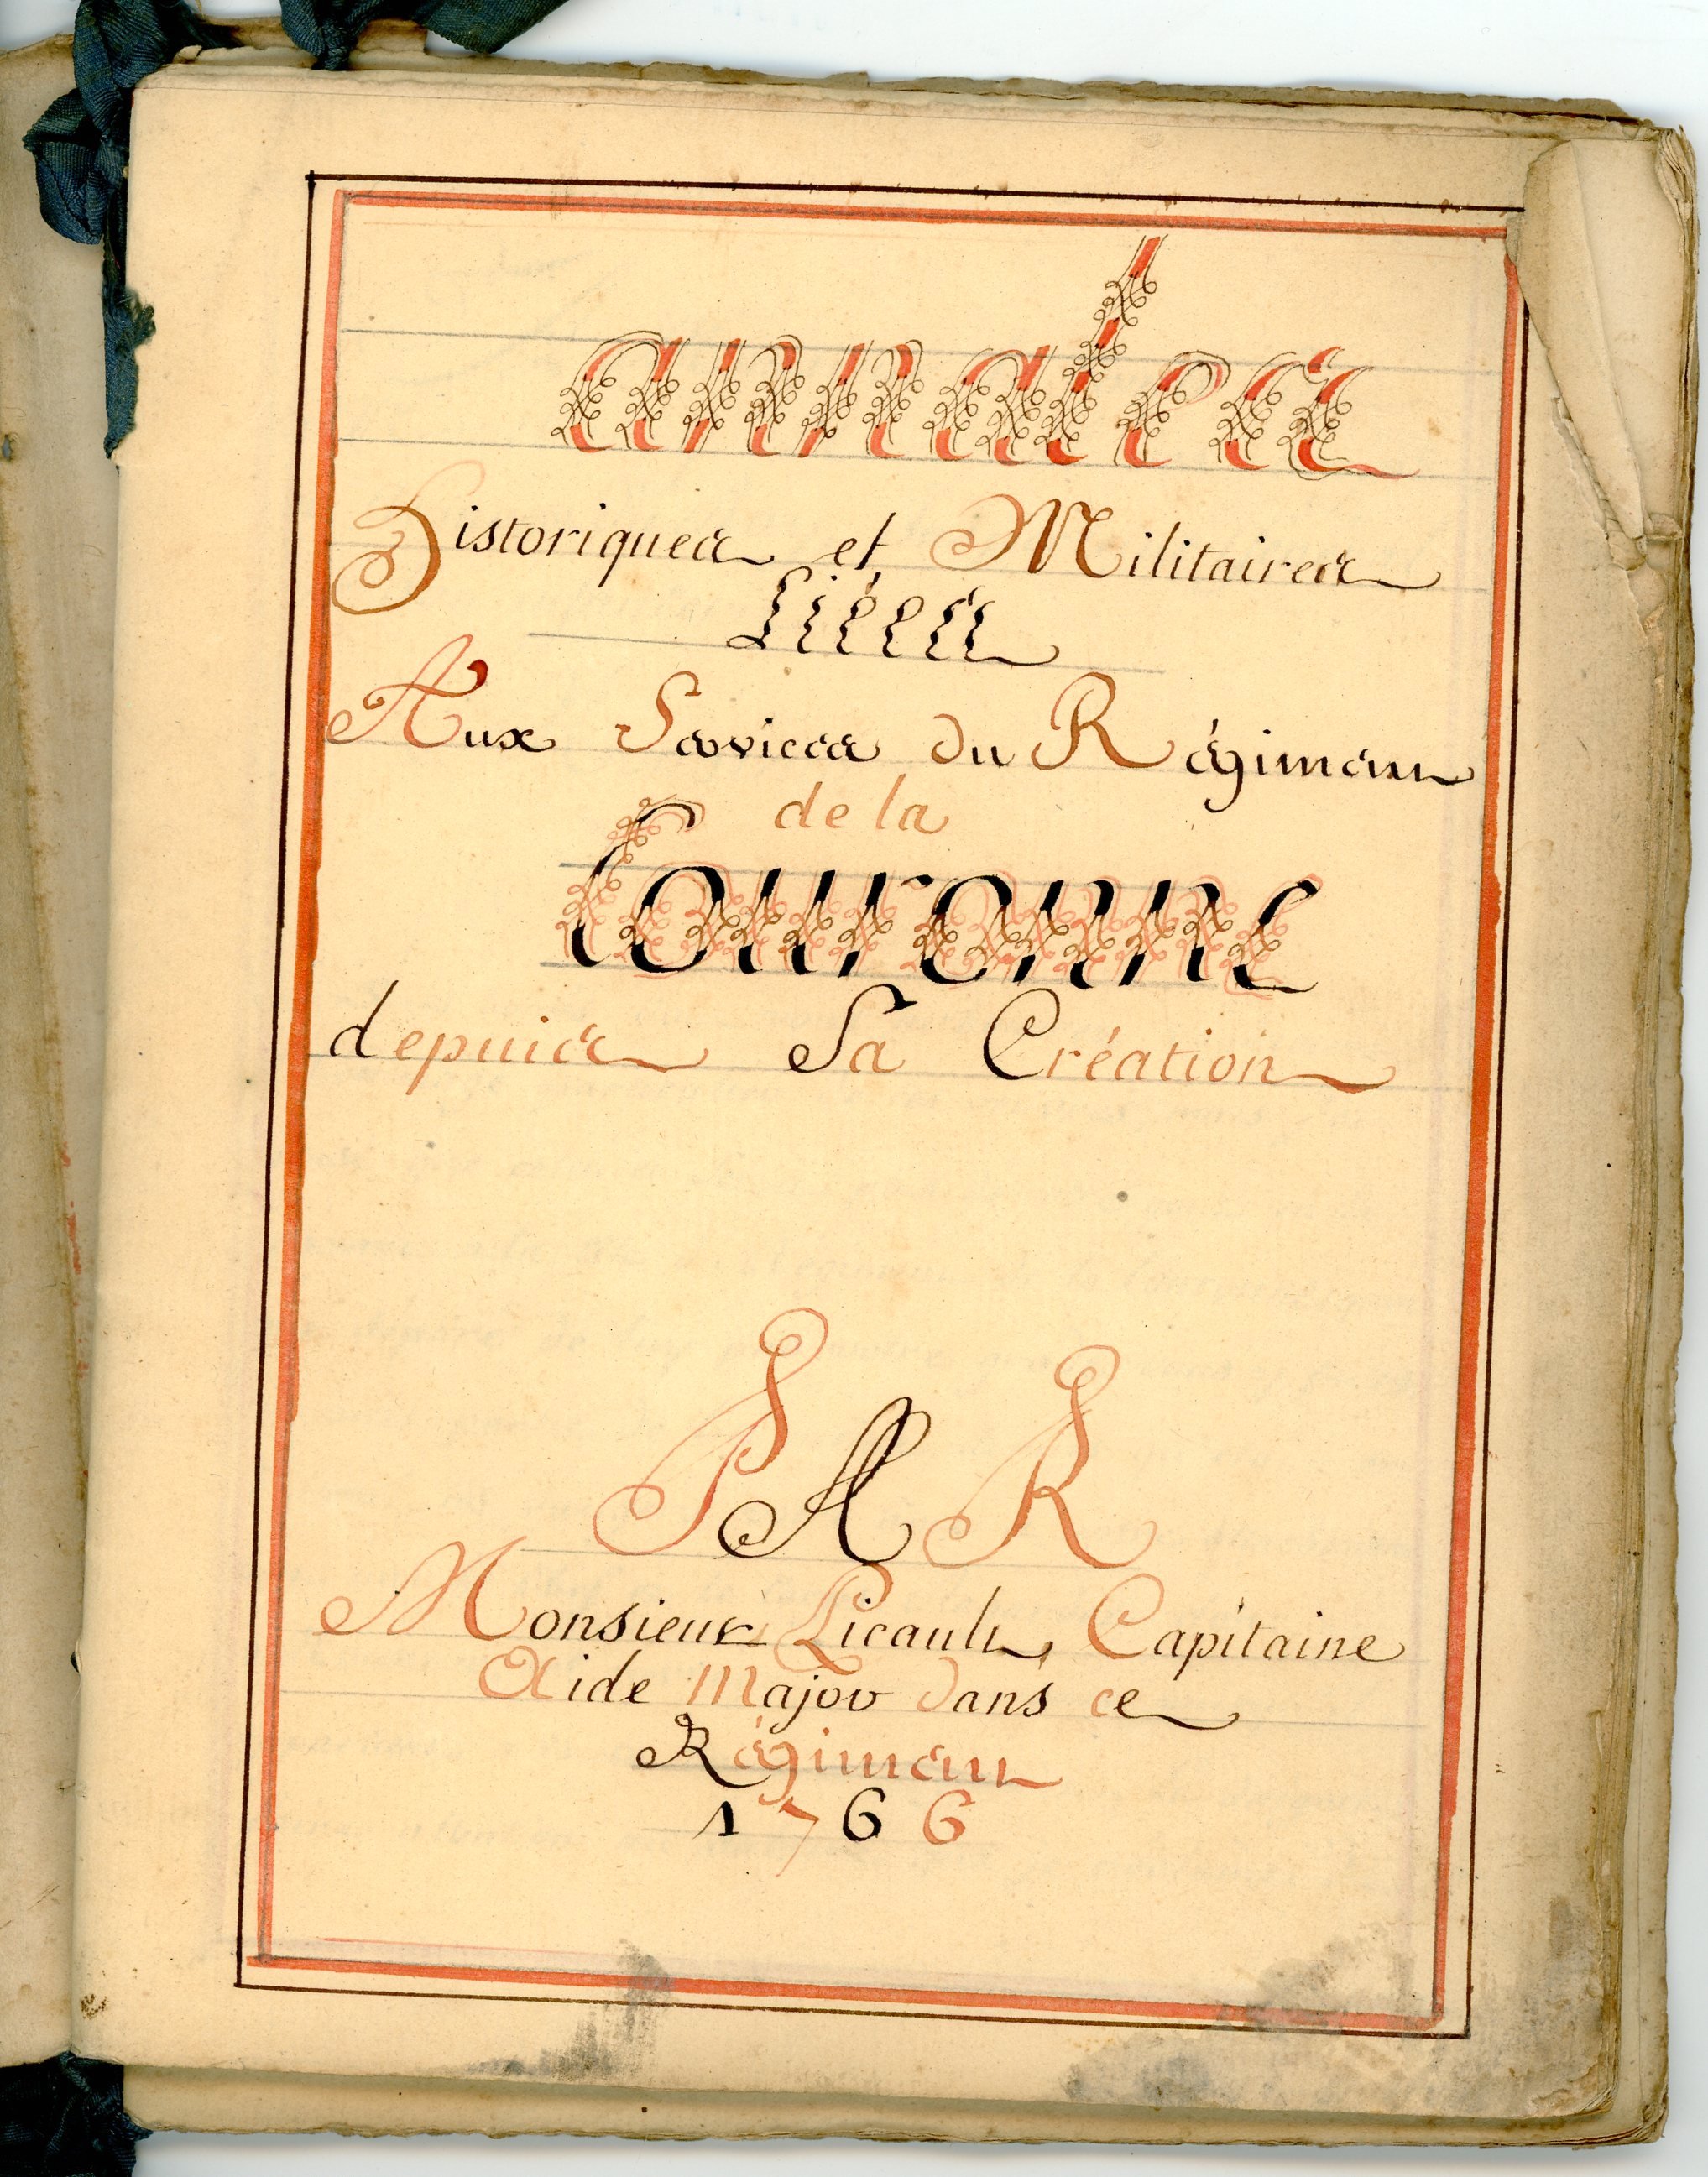 annales
Historiques et Militaires
Liées
Aux Services du Régiment
de la
Couronne
depuis Sa Création
PAR
Monsieur Licault, Capitaine
Aide Major dans ce
Régiment
1766